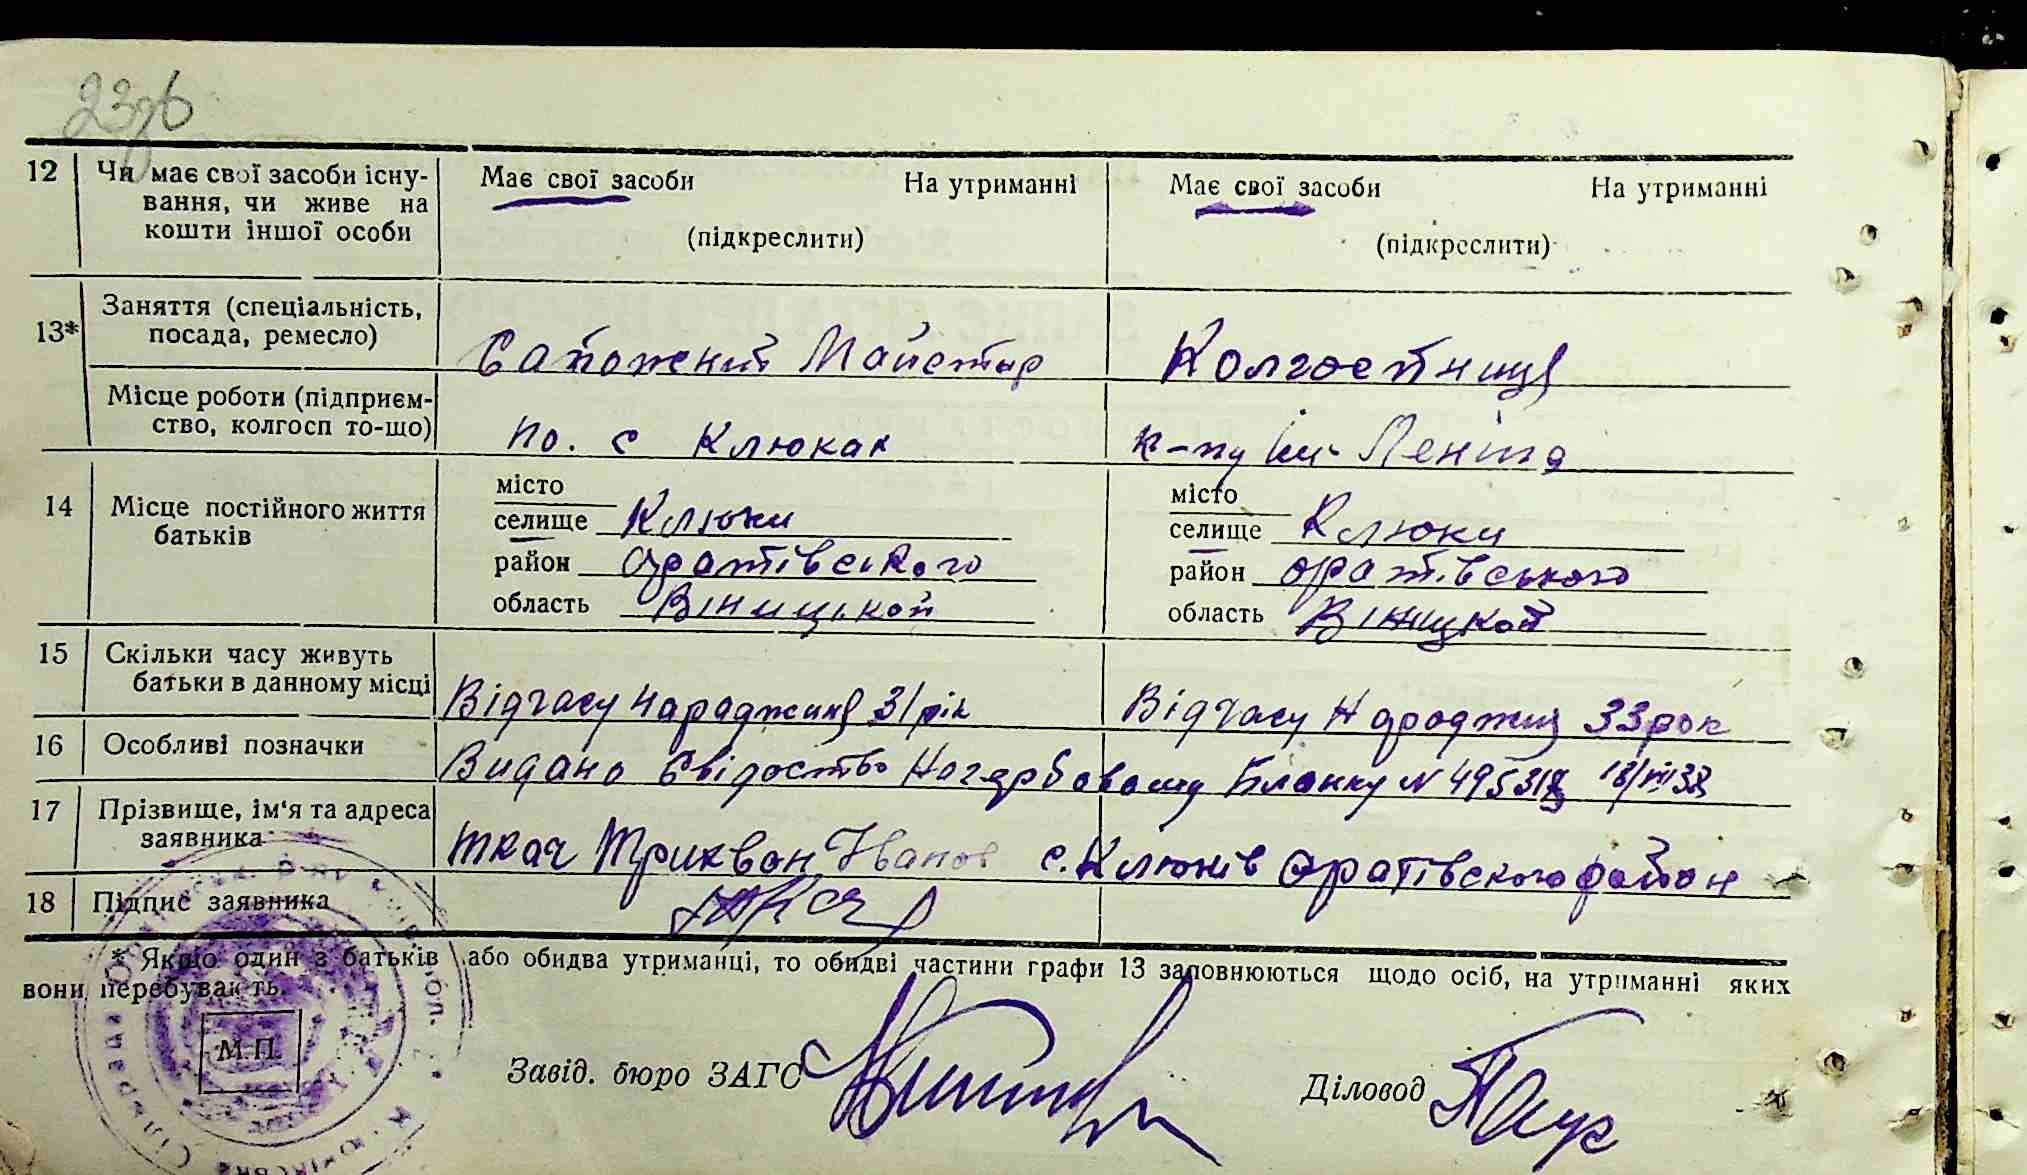 12 Чи має свої засоби існу- Має свої засоби На утриманні Має свої засоби На утриманні
вання, чи живе на
кошти іншої особи (підкреслити) (підкреслити)
13* Заняття (спеціальність,
посада, ремесло) Сапожний Майстир Колгоспниця
Місце роботи (підприєм-
ство, колгосп то-що) по. с Клюках к-пу Ім. Леніна
14 Місце постійного життя
батьків
місто місто
селище Клюки селище Клюки
район оратівського район оратівського
область Віницькой область Віницкой
15 Скільки часу живуть
батьки в данному місці Відчасу Народжиня 31 рік Відчасу Народжия 33 рок
16 Особливі позначки Видано Свідоство Бланку N
17 Прізвище, ім'я та адреса
заявника Ткач Трихвон Іванов с. Клюків Оратівского район
18 Підпис заявника
* Якщо один з батьків або обидва утриманці, то обидві частини графи 13 заповнюються щодо осіб, на утриманні яких
вони перебувають.
М.П.
Завід. бюро ЗАГС Діловод